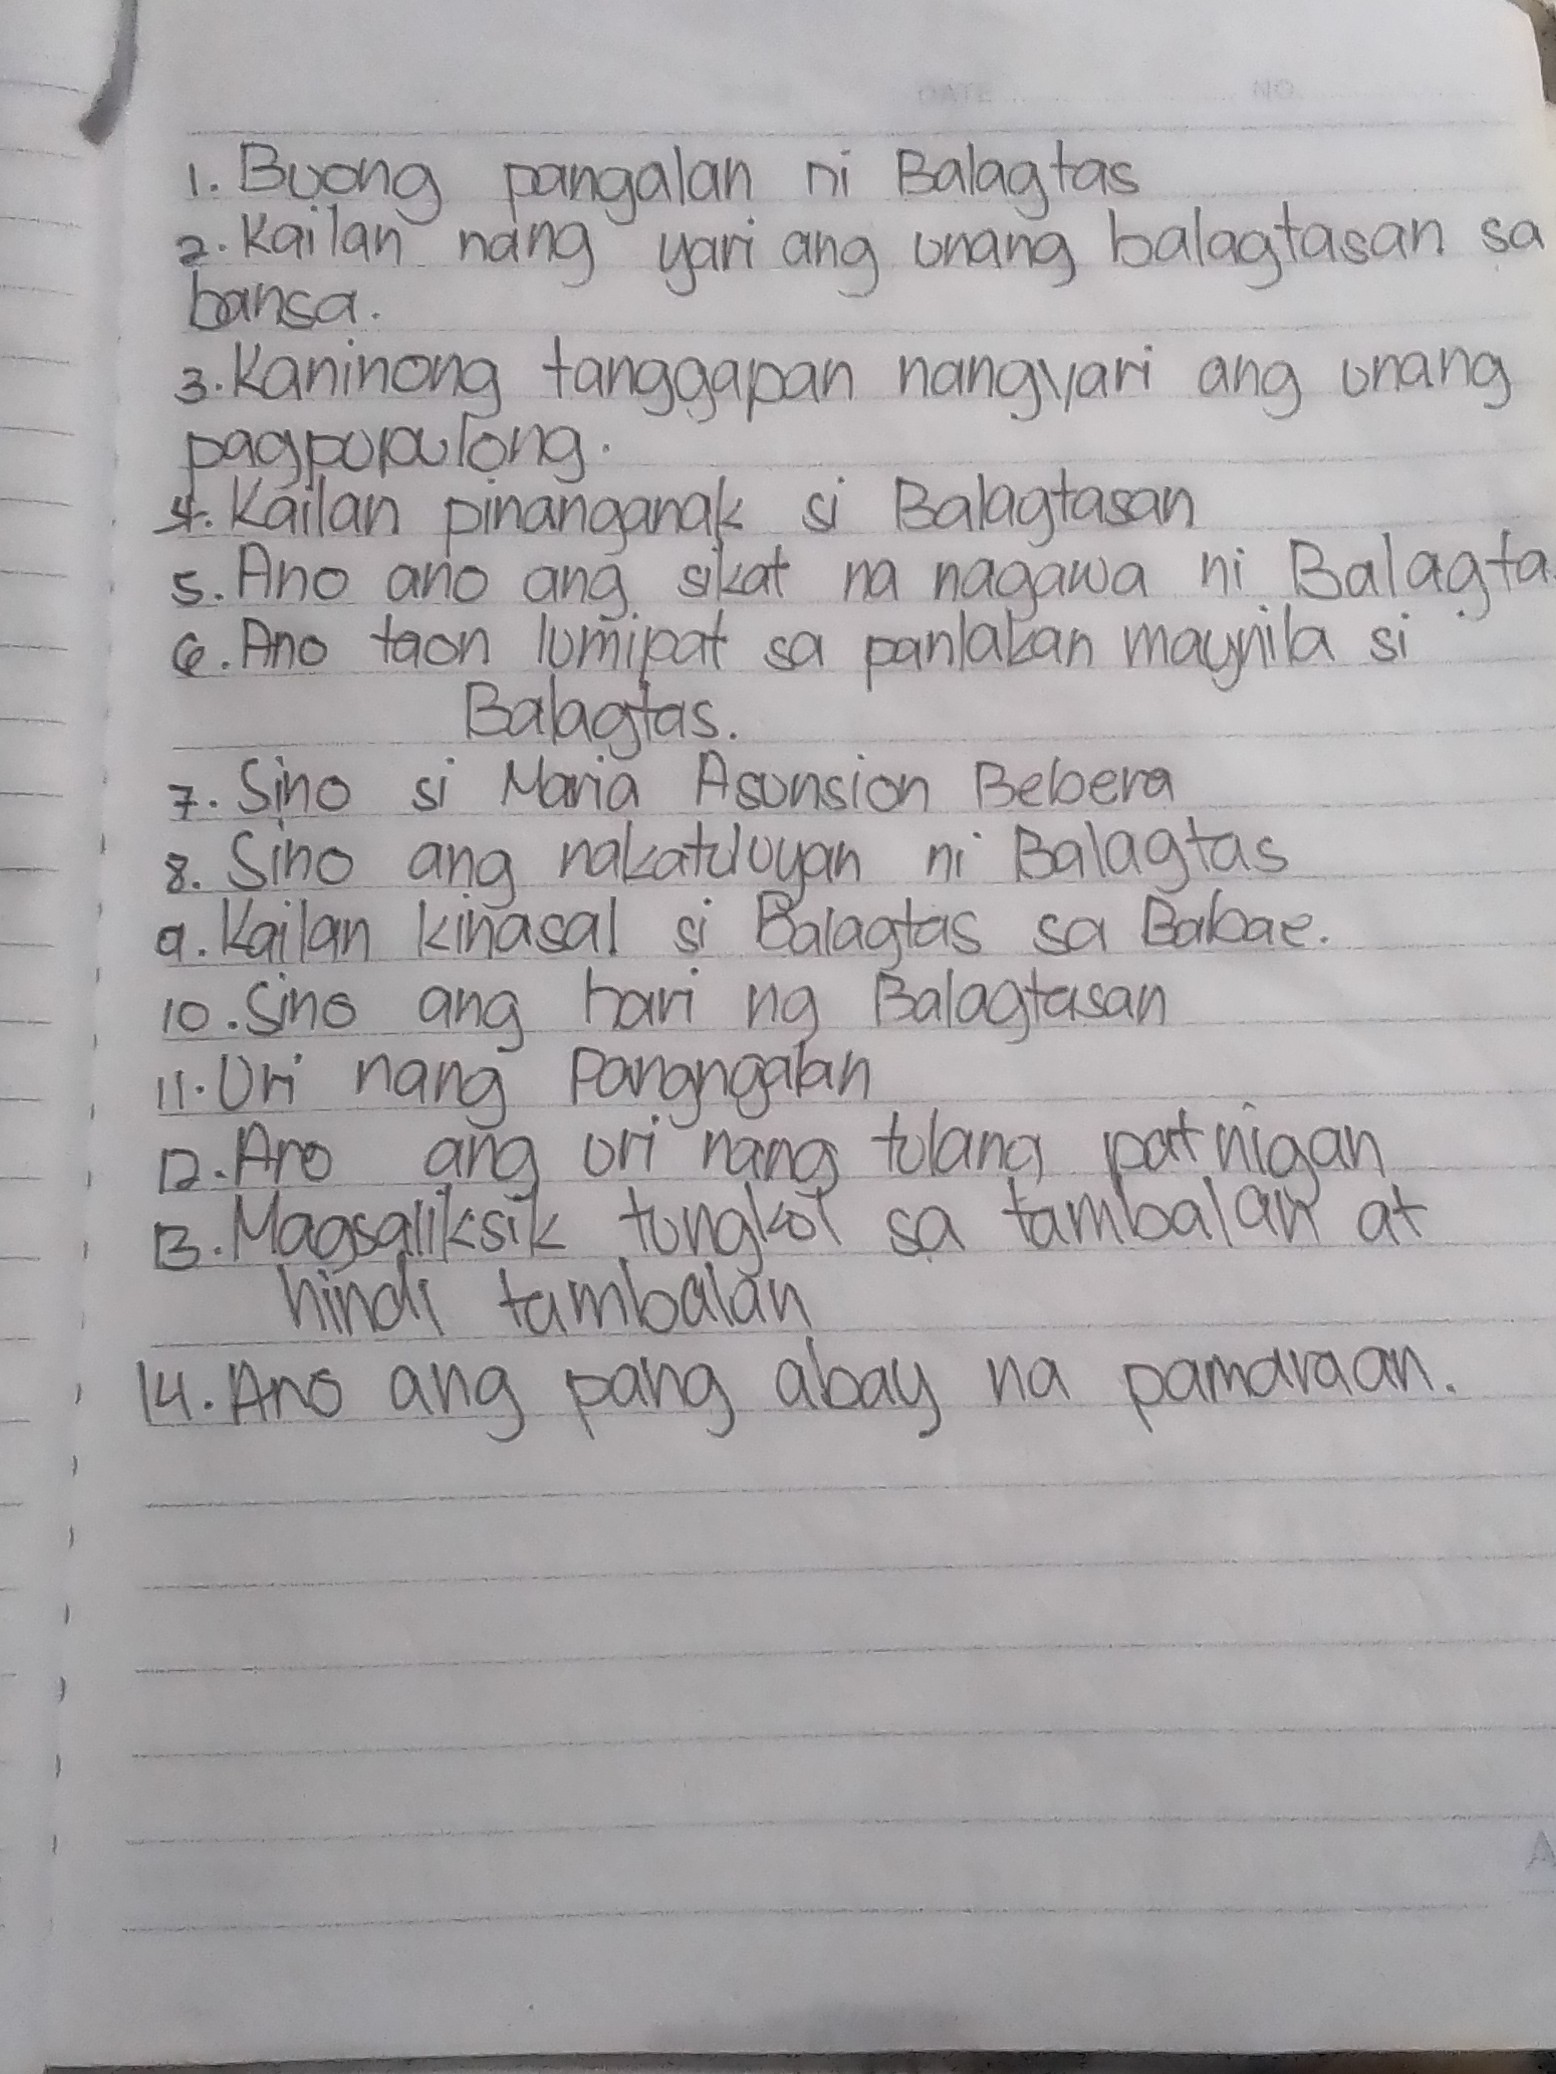 DATE NO.
1. Buong pangalan ni Balagtas
2. Kailan nang yari ang unang balagtasan sa
bansa.
3. Kaninong tanggapan nangyari ang unang
pagpupulong.
4. Kailan pinanganak si Balagtasan
5. Ano ano ang sikat na nagawa ni Balagta
6. Ano taon lumipat sa panlakan maynila si
Balagtas.
7. Sino si Maria Asunsion Bebera
8. Sino ang nakatuluyan ni Balagtas
9. Kailan kinasal si Balagtas sa Babae.
10. Sino ang hari ng Balagtasan
11. Uri nang Pangngalan
12. Ano ang uri nang tulang patnigan
13. Magsaliksik tungkol sa tambalan at
hindi tambalan
14. Ano ang pang abay na pamaraan.